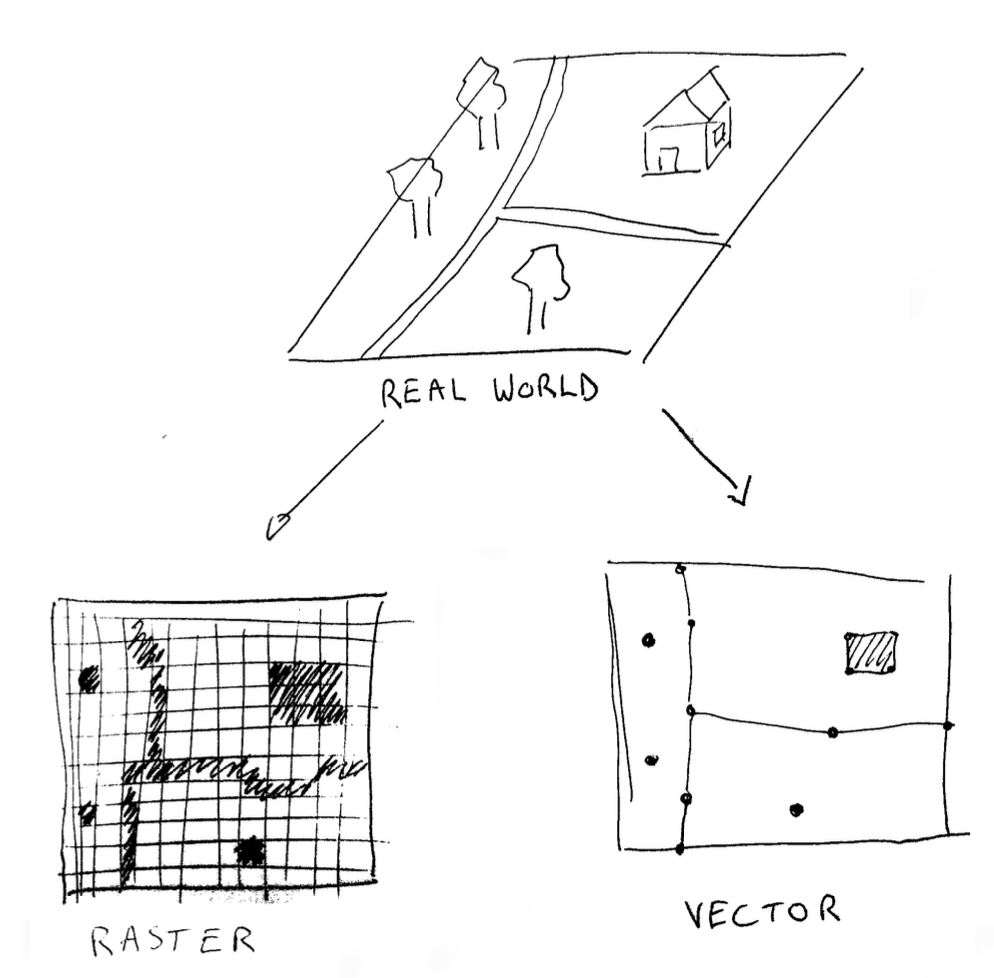 REAL WORLD
RASTER
VECTOR